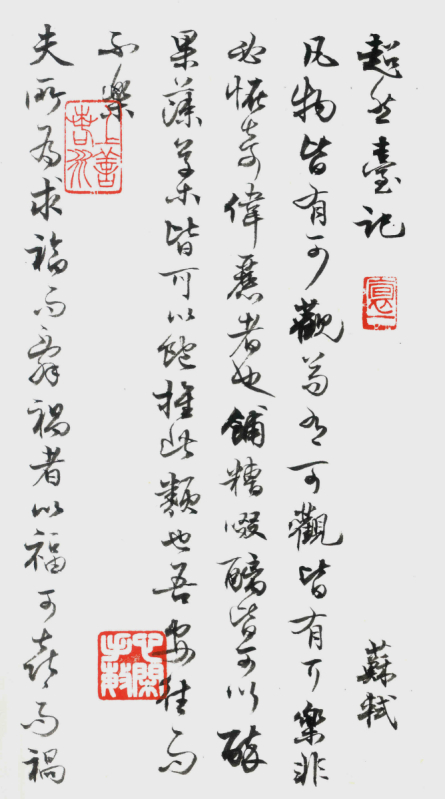 超然臺記
蘇軾
凡物皆有可觀苟有可觀皆有可樂非
必怪奇偉麗者也餔糟啜醨皆可以醉
果蔬草木皆可以飽推此類也吾安往而
不樂
上善若水
夫所為求福而辭禍者以福可喜而禍